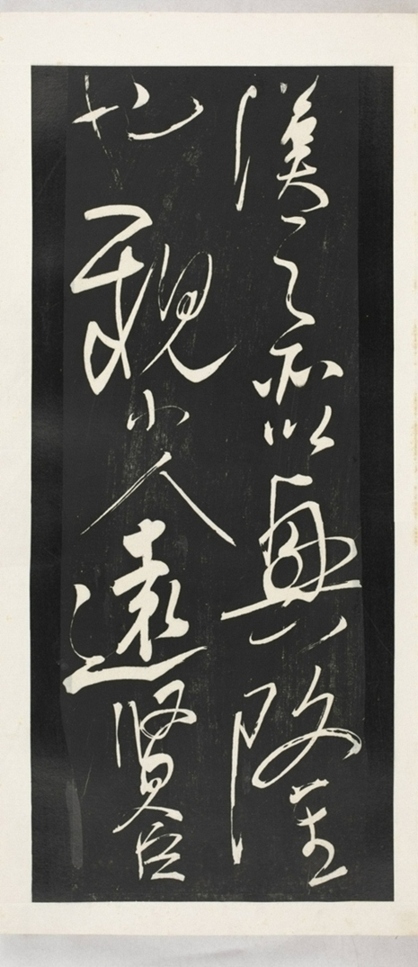 漢之所以興隆
也親小人遠賢臣